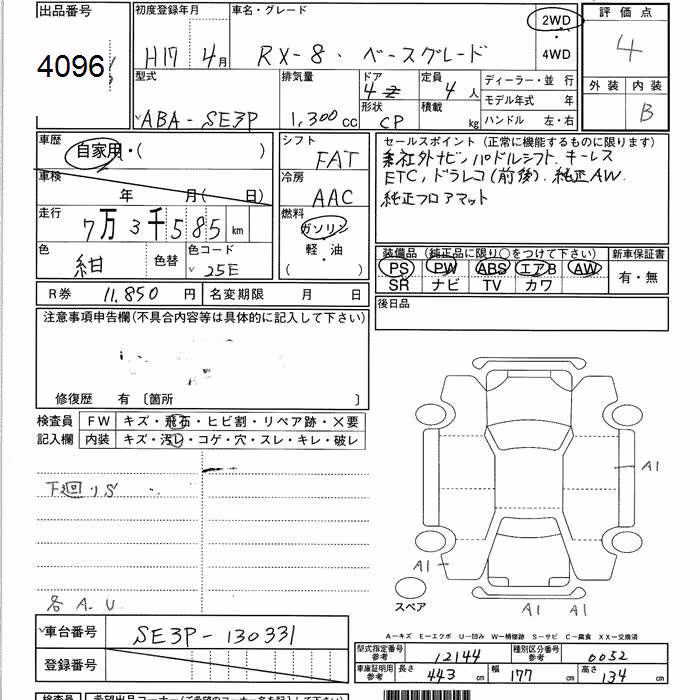 出品番号 初度登録年月 車名・グレード 評価点
4096 H17年 4月 RX-8・ベースグレード 2WD・4WD 4
型式 排気量 ドア 定員 ディーラー・並 行 外装 内装
ABA-SE3P 1,300cc 4 4人 モデル年式 年 B
形状 CP 積載 kg ハンドル 左・右
車歴 シフト セールスポイント (正常に機能するものに限ります)
自家用・( ) FAT 社外ナビ.パドルシフト.キーレス
車検 冷房 ETC,ドラレコ(前後).純正AW.
年 月( 日) AAC 純正フロアマット
走行 燃料
7万3千585km ガソリン
軽・油
( )
色 色替 色コード 装備品 (純正品に限り○をつけて下さい) 新車保証書
紺 25E PS PW ABS エアB AW 有・無
SR ナビ TV カワ
R券 11,850円 名変期限 月 日 後日品
注意事項申告欄(不具合内容等は具体的に記入して下さい)
修復歴 有 〔箇所 〕
検査員 FW キズ・飛石・ヒビ割・リペア跡・×要
記入欄 内装 キズ・汚レ・コゲ・穴・スレ・キレ・破レ
下廻りS
各A.U
A1
A1
A1 A1
スペア
A-キズ E-エクボ U-凹み W-補修跡 S-サビ C-腐食 XX-交換済
車台番号 SE3P-130331 型式指定番号参考 12144 種別区分番号参考 0052
登録番号 車庫証明用参考 長さ 443cm 幅 177cm 高さ 134cm